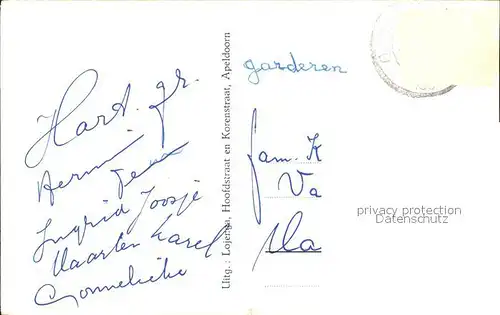 Hart. gr.
Hermi
Ingrid Joosje
Maarten Karel
Uitg.: Lojenga, Hoofdstraat en Korenstraat, Apeldoorn
garderen
fam. K
Va
Ma
privacy protection
Datenschutz